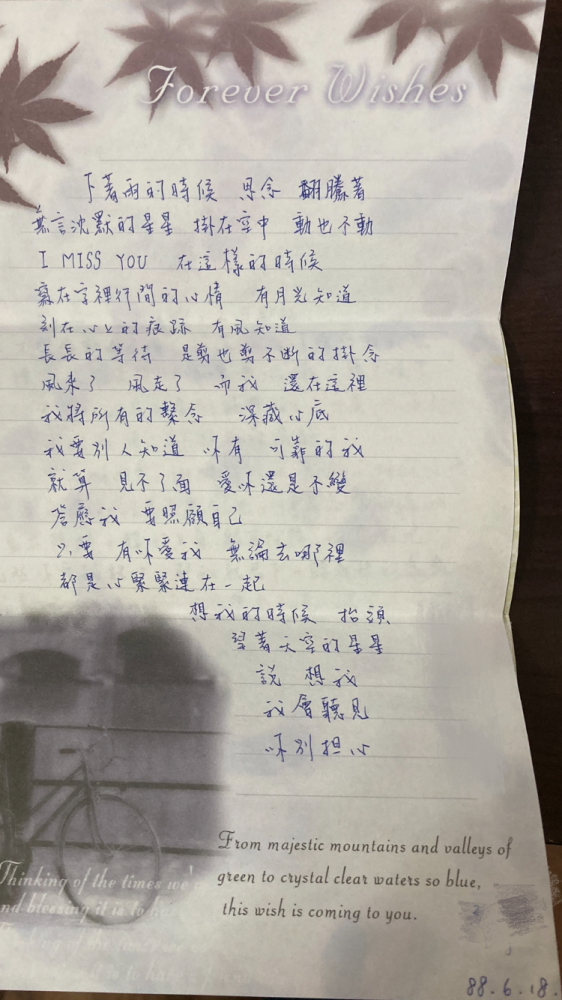 Forever Wishes
下著雨的時候 思念 翻騰著
無言沈默的星星 掛在空中 動也不動
I MISS YOU 在這樣的時候
寫在字裡行間的心情 有月光知道
刻在心上的痕跡 有風知道
長長的等待 是剪也剪不斷的掛念
風來了 風走了 而我 還在這裡
我將所有的繫念 深藏心底
我要別人知道 你有 可靠的我
就算 見不了面 愛你還是不變
答應我 要照顧自己
只要 有你愛我 無論去哪裡
都是心緊緊連在一起
想我的時候 抬頭
望著天空的星星
說 想我
我會聽見
你別擔心
From majestic mountains and valleys of
green to crystal clear waters so blue,
this wish is coming to you.
Thinking of the times we're
nd blessing it is to ha
88.6.18.